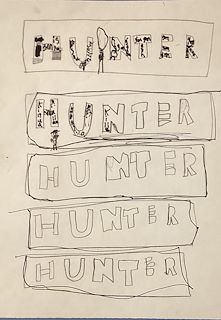 HUNTER
HUNTER
HUNTER
HUNTER
HUNTER